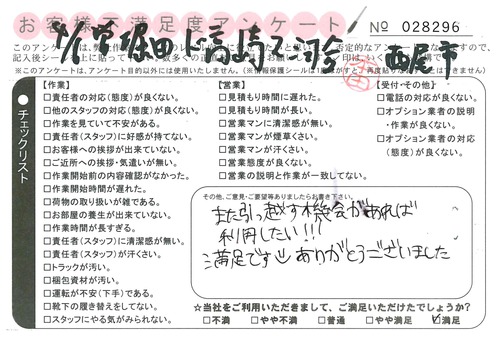 お客様不満足度アンケート
№ 028296
西尾市
チェックリスト
【作業】
□責任者の対応(態度)が良くない。
□他のスタッフの対応(態度)が良くない。
□作業を見ていて不安がある。
□責任者(スタッフ)に好感が持てない。
□お客様への挨拶が出来ていない。
□ご近所への挨拶・気遣いが無い。
□作業開始前の内容確認がなかった。
□作業開始時間が遅れた。
□荷物の取り扱いが雑である。
□お部屋の養生が出来ていない。
□作業時間が長すぎる。
□責任者(スタッフ)に清潔感が無い。
□責任者(スタッフ)が汗くさい。
□トラックが汚い。
□梱包資材が汚い。
□運転が不安(下手)である。
□靴下の履き替えをしてない。
□スタッフにやる気がみられない。
【営業】
□見積もり時間に遅れた。
□見積もり時間が長い。
□営業マンに清潔感が無い。
□営業マンが煙草くさい。
□営業マンが汗くさい。
□営業態度が良くない。
□営業の説明と作業が一致してない。
【受付・その他】
□電話の対応が良くない。
□オプション業者の説明
・作業が良くない。
□オプション業者の対応
(態度)が良くない。
その他、ご意見・ご要望等ありましたらお書き下さい。
また引っ越す機会があれば
利用したい!!!
満足です ありがとうございました
☆当社をご利用いただきまして、ご満足いただけたでしょうか?
□不満 □やや不満 □普通 □やや満足 ☑満足